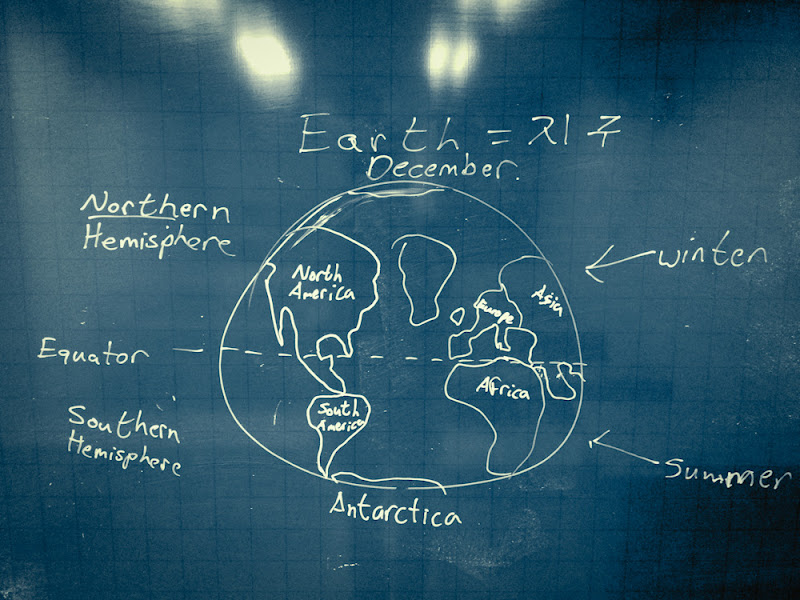 Earth = 지구
December.
Northern
Hemisphere
winter
North
America
Europe
Asia
Equator
Africa
South
America
Southern
Hemisphere
Summer
Antarctica